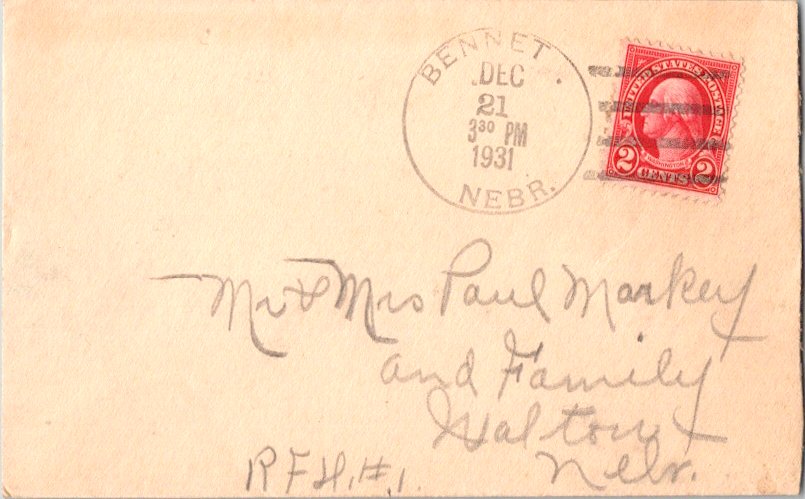 BENNET.
DEC
21
3 30 PM
1931
NEBR.
UNITED STATES POSTAGE
WASHINGTON
2 CENTS 2
Mr & Mrs Paul Markey
and Family
Walton
Nebr.
R F D, #, 1.